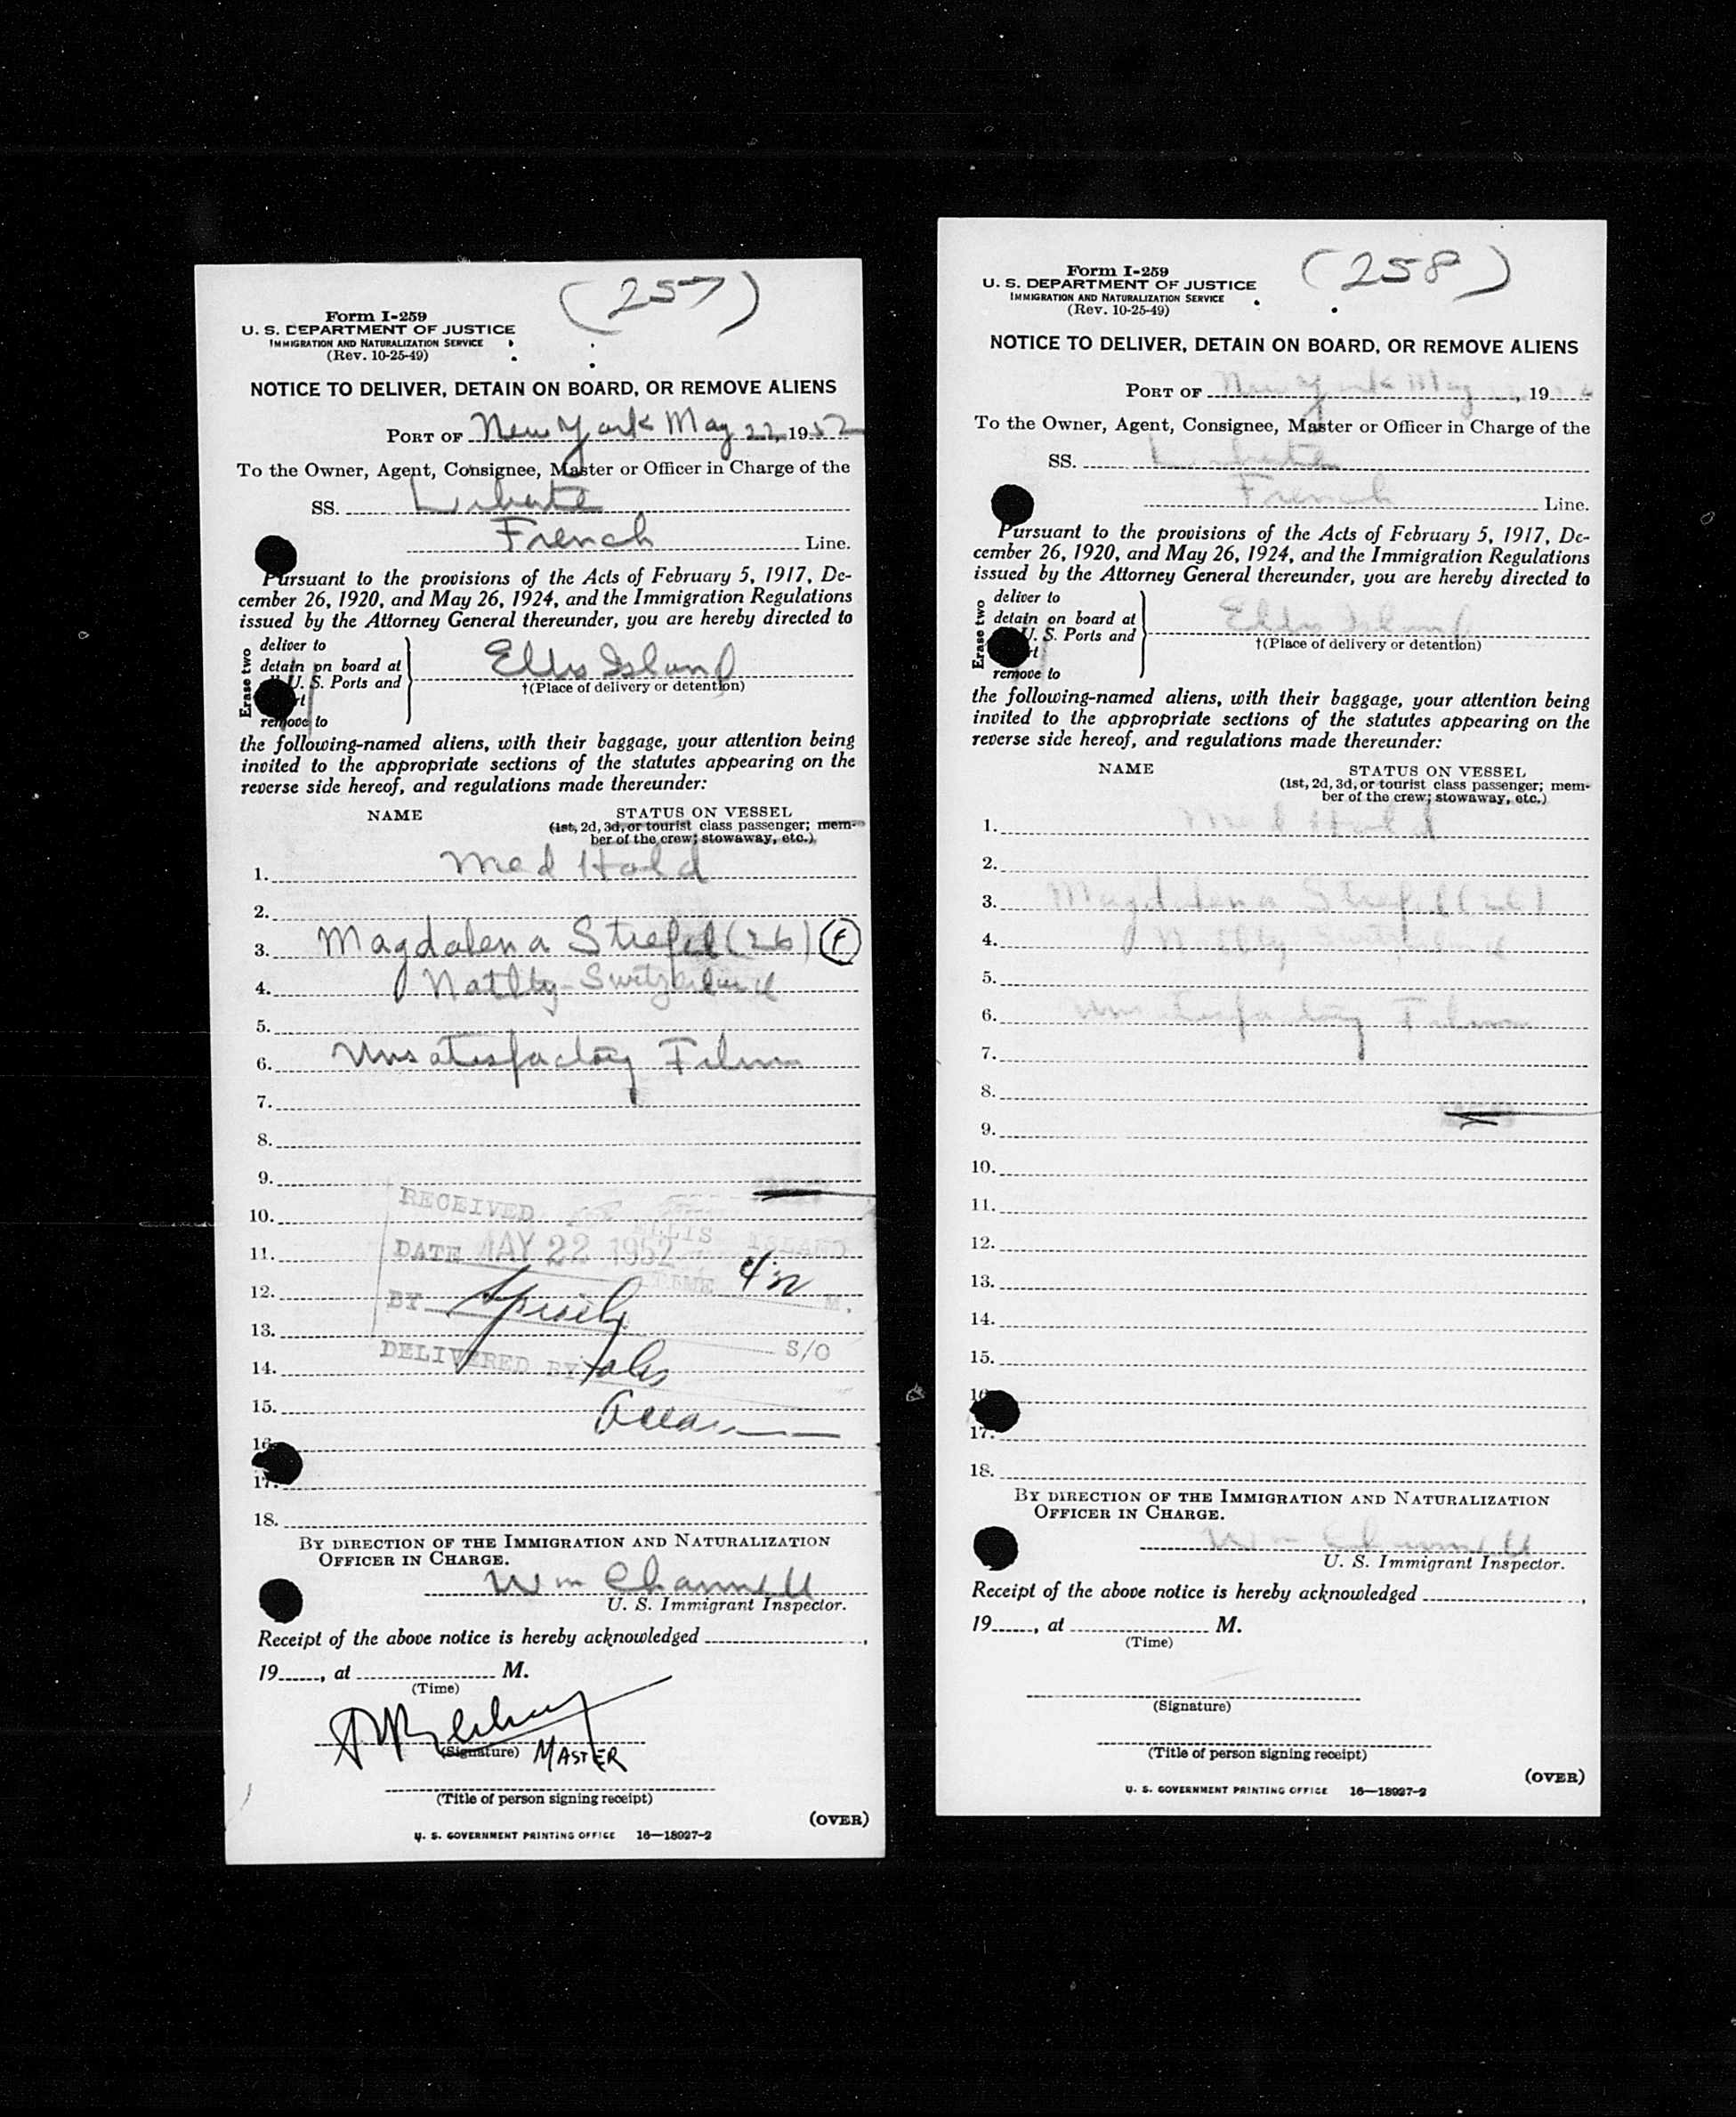 (257)
Form I-259
U. S. DEPARTMENT OF JUSTICE
IMMIGRATION AND NATURALIZATION SERVICE
(Rev. 10-25-49)
NOTICE TO DELIVER, DETAIN ON BOARD, OR REMOVE ALIENS
PORT OF New York May 22, 1952
To the Owner, Agent, Consignee, Master or Officer in Charge of the
SS. Liberte
French Line.
Pursuant to the provisions of the Acts of February 5, 1917, De-
cember 26, 1920, and May 26, 1924, and the Immigration Regulations
issued by the Attorney General thereunder, you are hereby directed to
Erase two
deliver to
detain on board at
U. S. Ports and
remove to
Ellis Island
†(Place of delivery or detention)
the following-named aliens, with their baggage, your attention being
invited to the appropriate sections of the statutes appearing on the
reverse side hereof, and regulations made thereunder:
NAME STATUS ON VESSEL
(1st, 2d, 3d, or tourist class passenger; mem-
ber of the crew; stowaway, etc.)
1. Med Hold
2.
3. Magdalena (26) (f)
4. Natlty - Switzerland
5.
6. Unsatisfactory Film
7.
8.
9.
RECEIVED
10.
ELLIS ISLAND
11. DATE MAY 22 1952
TIME M.
12. BY
13.
S/O
14. DELIVERED BY
15.
16.
17.
18.
BY DIRECTION OF THE IMMIGRATION AND NATURALIZATION
OFFICER IN CHARGE.
Wm Channell
U. S. Immigrant Inspector.
Receipt of the above notice is hereby acknowledged
19, at M.
(Time)
(Signature) MASTER
(Title of person signing receipt)
(OVER)
U. S. GOVERNMENT PRINTING OFFICE 16—18027-2
(258)
Form I-259
U. S. DEPARTMENT OF JUSTICE
IMMIGRATION AND NATURALIZATION SERVICE
(Rev. 10-25-49)
NOTICE TO DELIVER, DETAIN ON BOARD, OR REMOVE ALIENS
PORT OF New York May , 19
To the Owner, Agent, Consignee, Master or Officer in Charge of the
SS. Liberte
French Line.
Pursuant to the provisions of the Acts of February 5, 1917, De-
cember 26, 1920, and May 26, 1924, and the Immigration Regulations
issued by the Attorney General thereunder, you are hereby directed to
Erase two
deliver to
detain on board at
U. S. Ports and
remove to
Ellis Island
†(Place of delivery or detention)
the following-named aliens, with their baggage, your attention being
invited to the appropriate sections of the statutes appearing on the
reverse side hereof, and regulations made thereunder:
NAME STATUS ON VESSEL
(1st, 2d, 3d, or tourist class passenger; mem-
ber of the crew; stowaway, etc.)
1. Med Hold
2.
3. Magdalena (26)
4. Natlty Switzerland
5.
6. Unsatisfactory Film
7.
8.
9.
10.
11.
12.
13.
14.
15.
16
17.
18.
BY DIRECTION OF THE IMMIGRATION AND NATURALIZATION
OFFICER IN CHARGE.
Wm Channell
U. S. Immigrant Inspector.
Receipt of the above notice is hereby acknowledged
19, at M.
(Time)
(Signature)
(Title of person signing receipt)
(OVER)
U. S. GOVERNMENT PRINTING OFFICE 16—18027-2